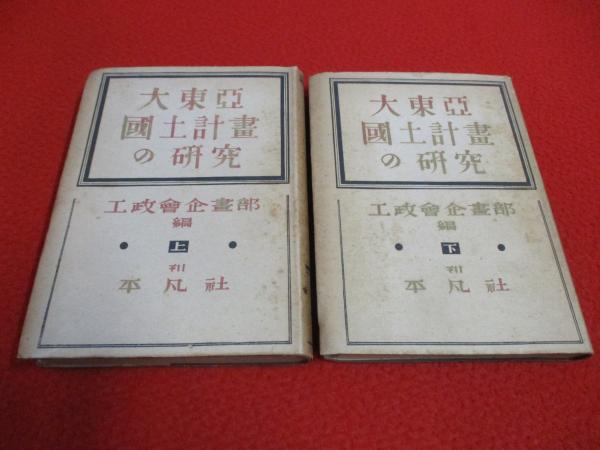 大東亞
國土計畫
の研究
工政會企畫部
編
上
刊
平凡社
大東亞
國土計畫
の研究
工政會企畫部
編
下
刊
平凡社